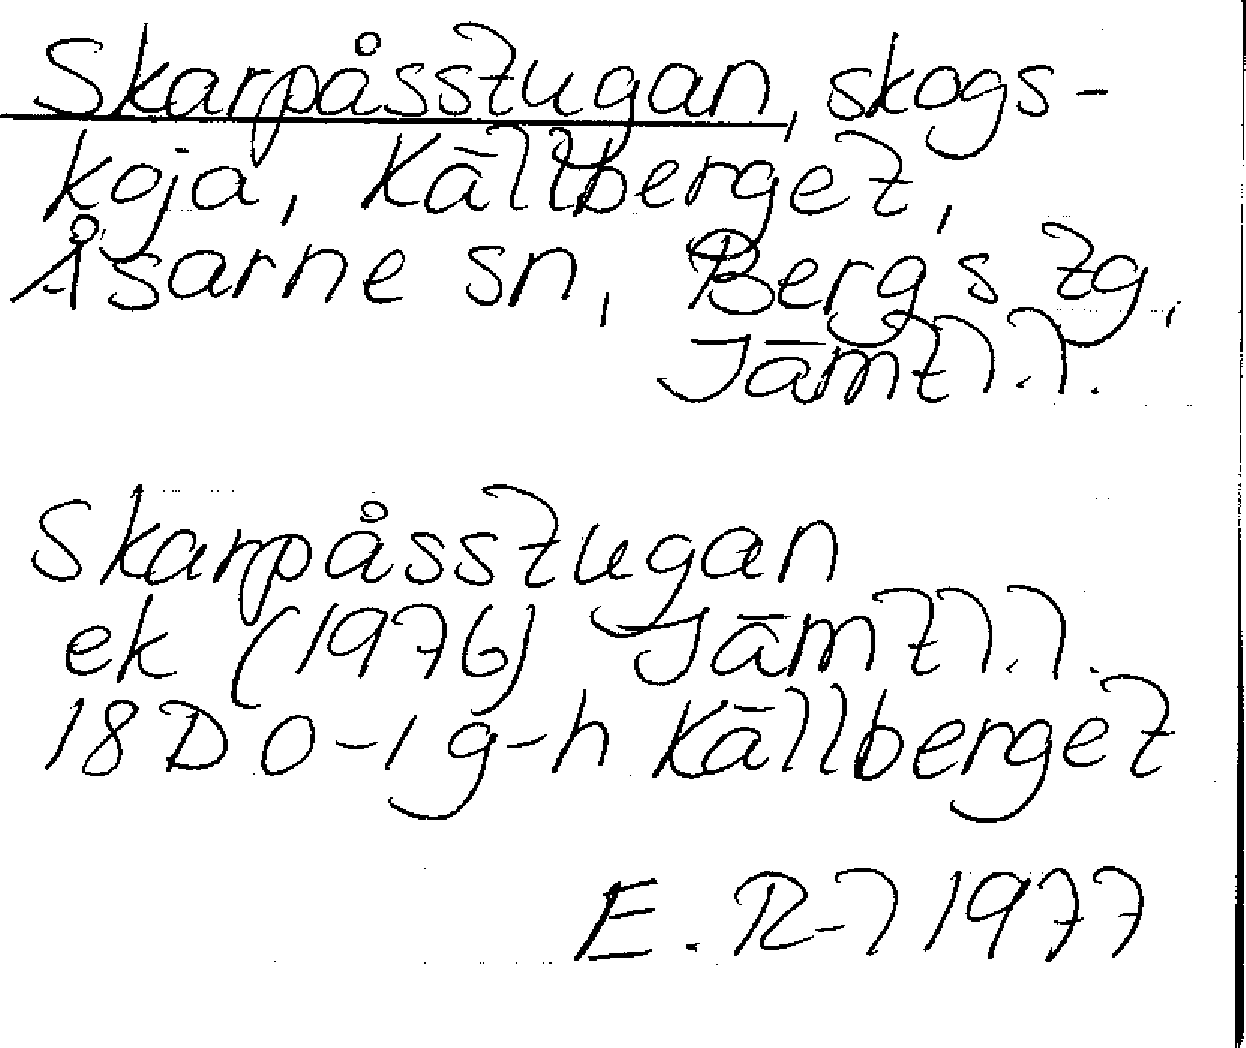 Skarpåsstugan, skogs-
koja, Källberget,
Åsarne sn, Bergs tg,
Jämtl.l.
Skarpåsstugan
ek (1976) Jämtl.l.
18D 0-1 g-h Källberget
E. R-l 1977